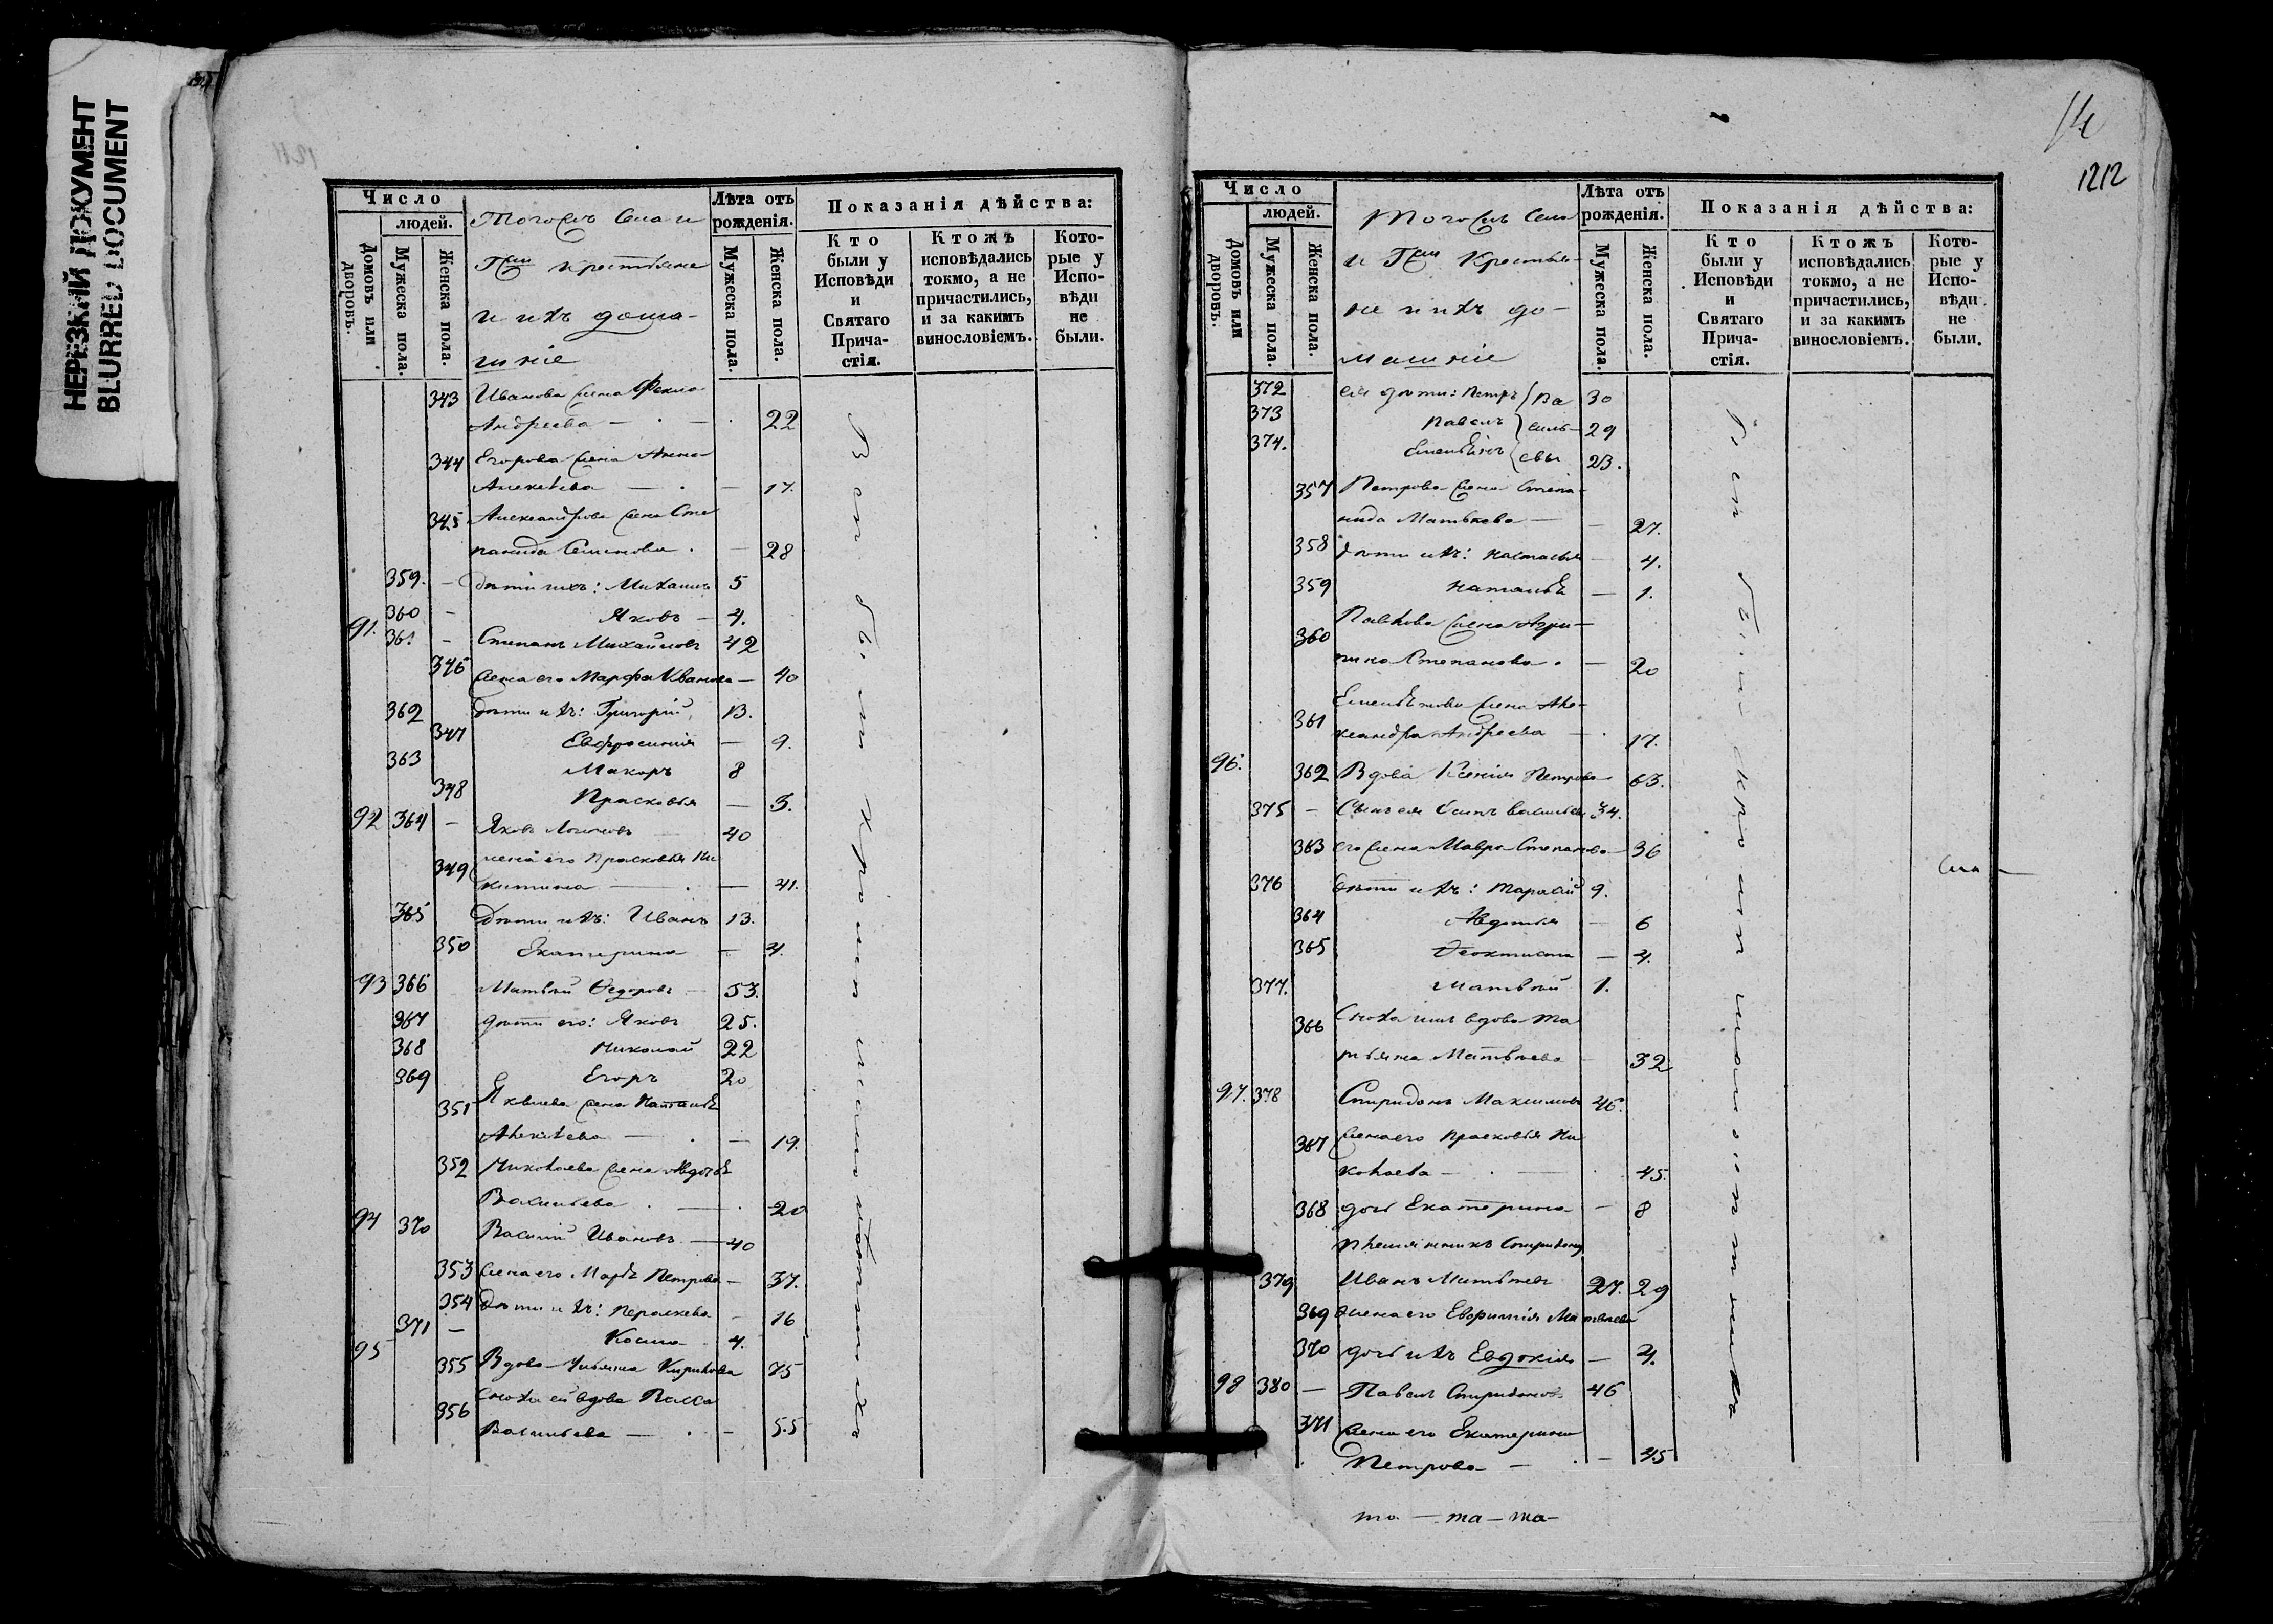 НЕРЕЗКИЙ ДОКУМЕНТ
BLURRED DOCUMENT
Число
людей.
Домовъ или дворовъ.
Мужеска пола.
Женска пола.
Тогожъ Села и
Гжи крестьяне
и ихъ дома-
шніе
Лѣта отъ рожденія.
Мужеска пола.
Женска пола.
Показанія дѣйства:
Кто были у Исповѣди и Святаго Прича- стія.
Ктожъ исповѣдались токмо, а не причастились, и за какимъ винословіемъ.
Кото- рые у Испо- вѣди не были.
343 Иванова жена Фекла
Андреева — 22
344 Егорова жена Анна
Алексѣева — 17.
345 Александрова жена Сте
панида Семенова . — 28
359. — дѣти ихъ: Михаилъ 5
360 — Яковъ — 4.
91. 361 — Степанъ Михайловъ 42
346 жена его Марфа Иванова — 40
362 дѣти ихъ: Григорій 13.
347 Евфросинія — 9.
363 Макаръ 8
348 Прасковья — 3.
92 364 — Яковъ 40
349 жена его Прасковья Ни
китина — . — 41.
365 Дѣти ихъ: Иванъ 13.
350 Екатерина — 4.
93 366 Матвѣй Ѳедоровъ — 53.
367 дѣти его: Яковъ 25.
368 Николай 22
369 Егоръ 20
351 Яковлева жена Наталья
Алексѣева — . — 19.
352 Николаева жена Авдотья
Васильева . — . 20
94 370 Василій Ивановъ — 40
353 жена его Марья Петрова — 37.
354 Дѣти ихъ: Параскева — 16
371 — Косма — 4.
95 355 Вдова Ульяна Кирилова 75
356 сноха ей вдова Васса
Васильева — . — 55
14
1212
Число
людей.
Домовъ или дворовъ.
Мужеска пола.
Женска пола.
Тогожъ Села
и Гжи Крестья-
не и ихъ до-
машніе
Лѣта отъ рожденія.
Мужеска пола.
Женска пола.
Показанія дѣйства:
Кто были у Исповѣди и Святаго Прича- стія.
Ктожъ исповѣдались токмо, а не причастились, и за какимъ винословіемъ.
Кото- рые у Испо- вѣди не были.
372 ея дѣти: Петръ Ва 30
373 Павелъ силь- 29
374. Емельянъ евы 23.
357 Петрова жена Степа-
нида Матвѣева — — 27.
358 дѣти ихъ: Настасья — 4.
359 Наталья — 1.
Павлова жена Агри-
360
пина Степанова . — 20
Емельянова жена Але-
361
ксандра Андреева — . 17.
96. 362 Вдова Ксенія Петрова 63.
375 — Сынъ ея Осипъ Васильевъ 34.
363 его жена Мавра Степанова 36
376 дѣти ихъ: Тарасій 9.
364 Авдотья — 6
365 Ѳеоктиста — 4.
377. Матвѣй 1.
366 Сноха вдова Та
тьяна Матвѣева — 32
97. 378 Спиридонъ Максимовъ 46.
367 жена его Прасковья Ни
колаева — . — . 45.
368 дочь Екатерина — 8
племянникъ Спиридона
379 Иванъ Матвѣевъ 27. 29
369 жена его Евфимія Матвѣева
370 дочь ихъ Евдокія — 4.
98 380 — Павелъ Спиридоновъ 46
371 жена его Екатерина
Петрова — . — 45